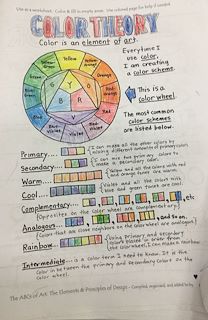 Use as a worksheet. Color & fill in empty areas. Use colored page for help if needed
COLOR THEORY
Color is an element of art.
Everytime I
use color,
I am creating
a color scheme.
Yellow
Yellow-Orange
Orange
Red-Violet
Violet
Blue-Violet
Green
Yellow-Green
Y
O
R
V
B
G
This is a
color wheel.
The most common
color schemes
are listed below.
Primary....
I can make all the other colors by
mixing different amounts of primary colors.
Secondary
I can mix two primary colors to
make a secondary color.
Warm...
Yellow and all the colors with red
and orange tones are warm.
Cool...
Violet and all the colors with
blue and green tones are cool.
Complementary..
etc.
(Opposites on the color wheel are complementary)
Analogous...
and so on.
(Colors that are close neighbors on the color wheel are analogous)
Rainbow...
Using primary and secondary
colors placed in order from
the color wheel, I can make a rainbow!
Intermediate... is a color term I need to know. It is the
color in between the primary and secondary colors on the
color wheel.
The ABCs of Art: The Elements & Principles of Design